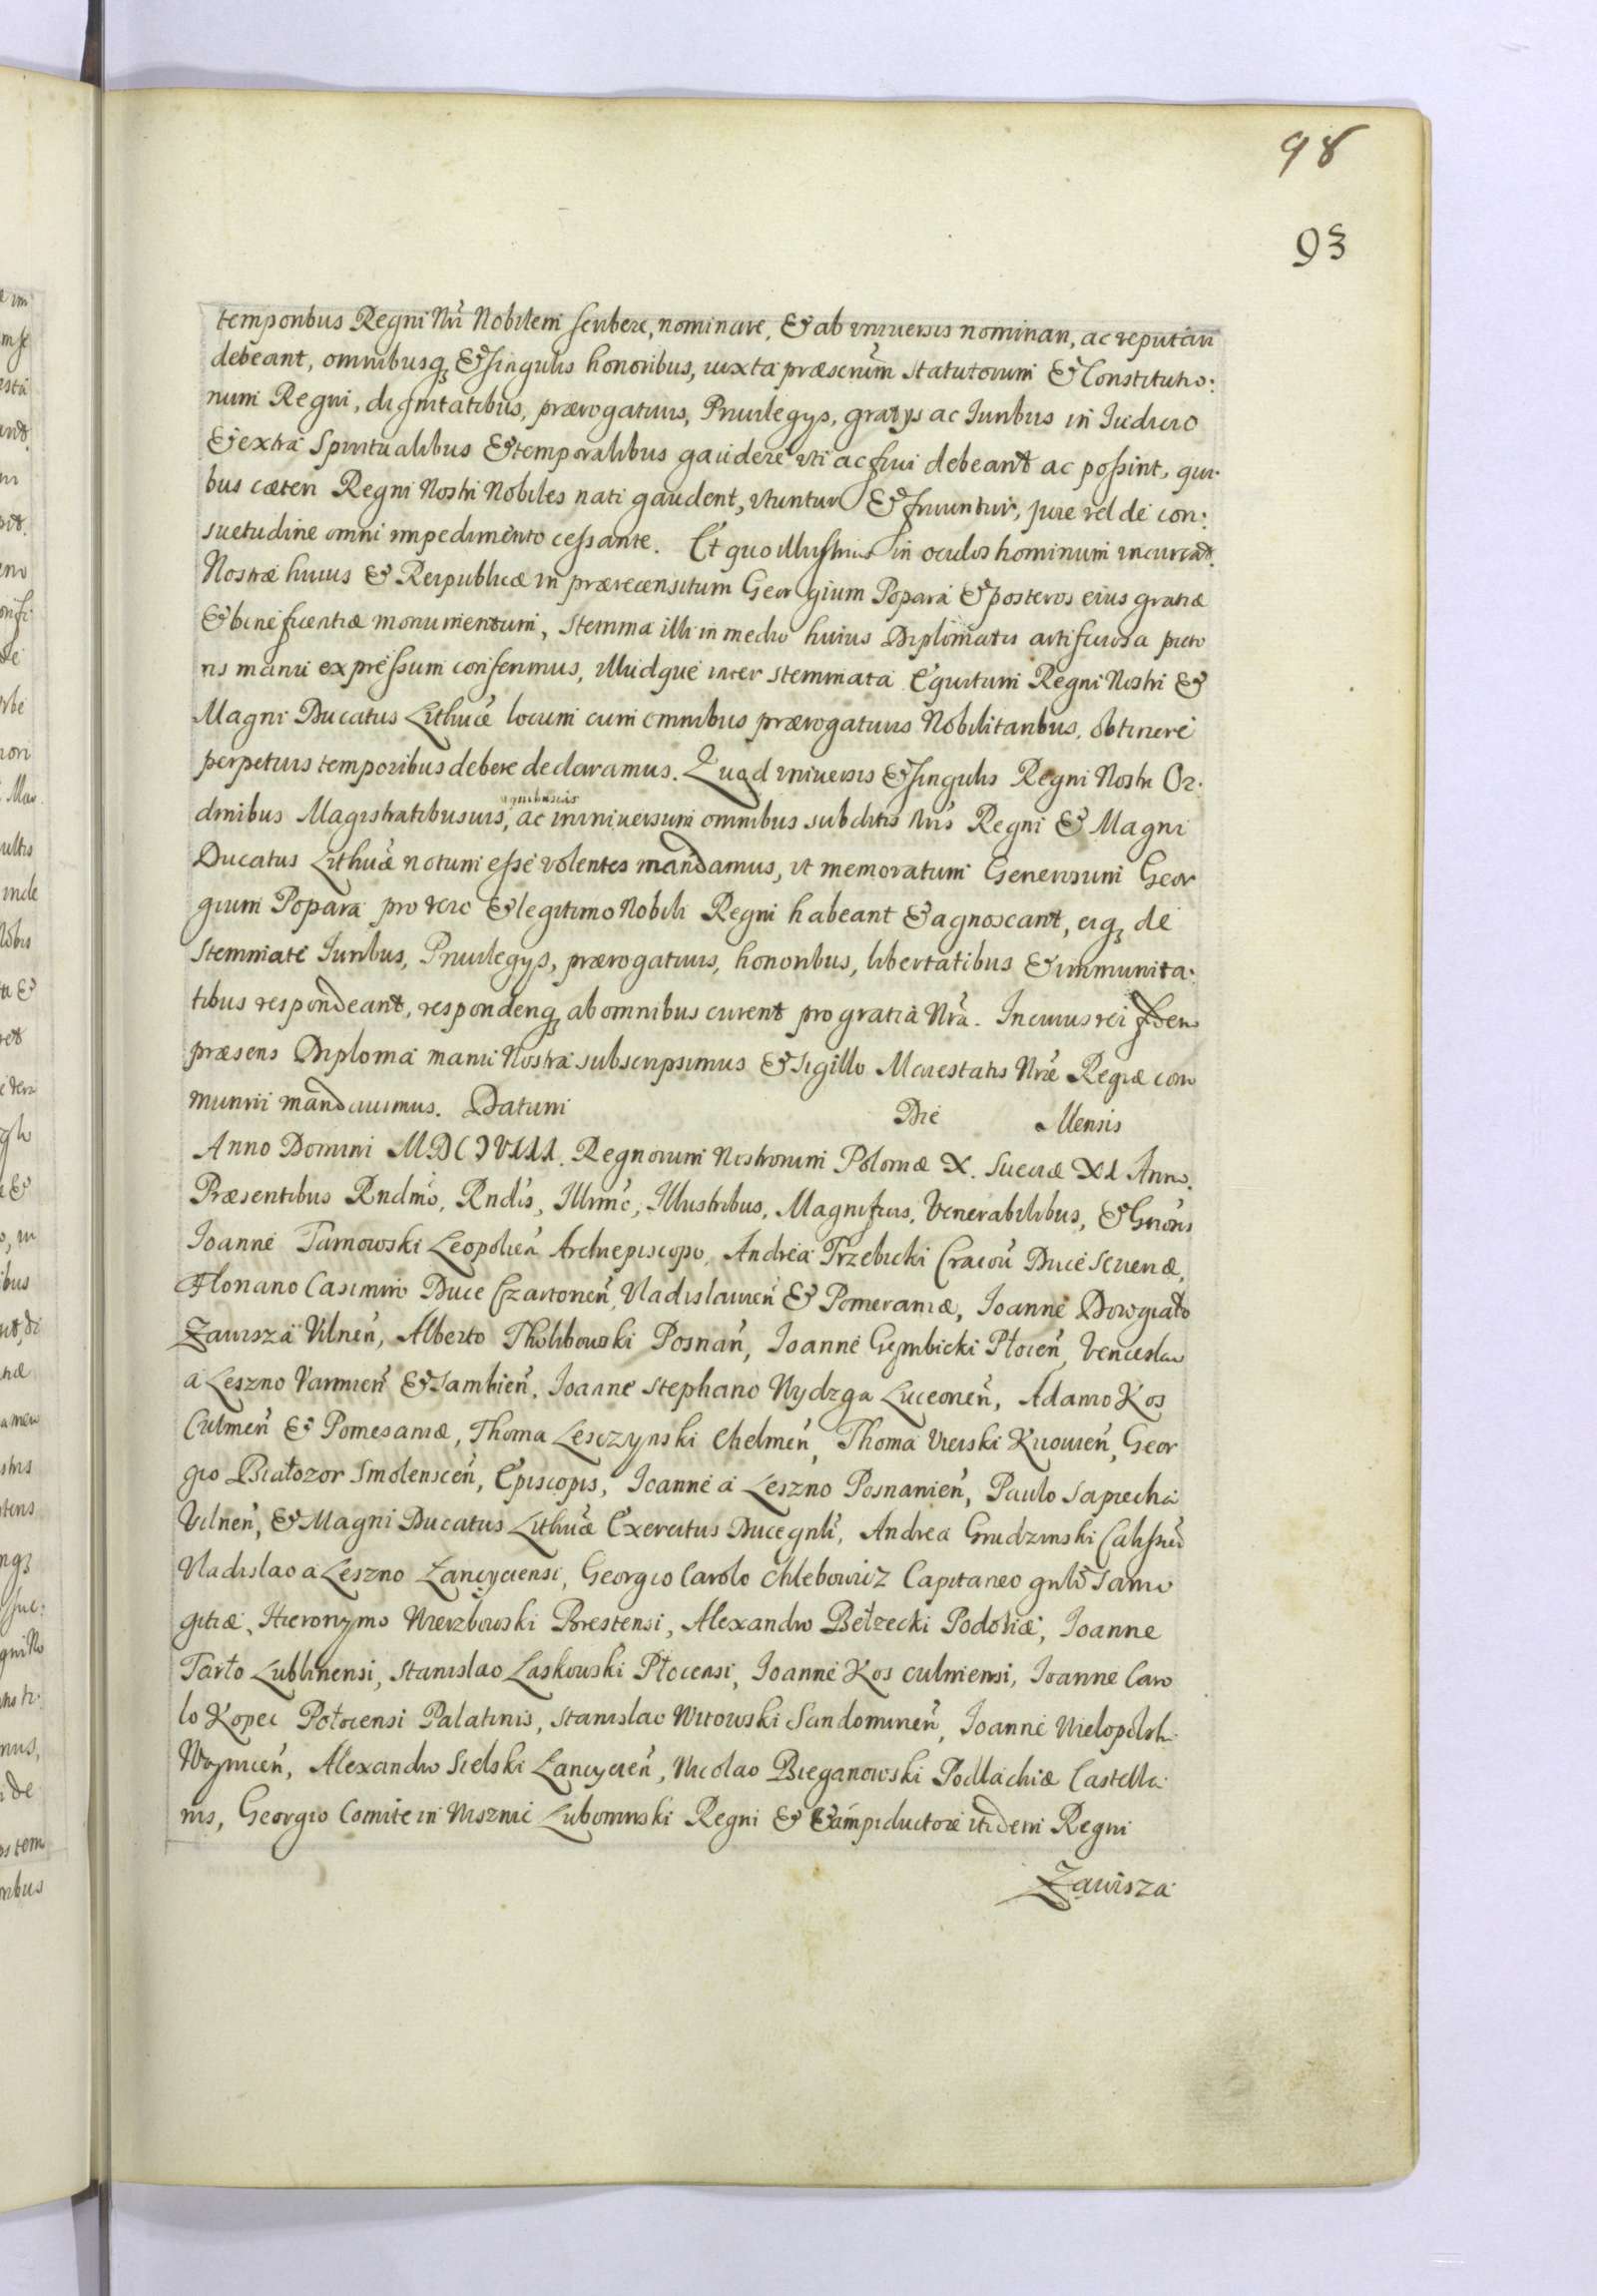 98
93
temporibus Regni Nri Nobilem scribere, nominare, & ab universis nominari, ac reputari
debeant, omnibusq, & singulis honoribus, iuxta præscriptum Statutorum & Constitutio:
num Regni, dignitatibus, prærogativis, Privilegys, gratys ac Iuribus in Iudicio
& extra Spiritualibus & temporalibus gaudere uti ac frui debeant ac possint, qui:
bus cæteri Regni Nostri Nobiles nati gaudent, utuntur & fruuntur, jure vel de con:
suetudine omni impedimento cessante. Et quo illustrius in oculos hominum incurrat
Nostræ huius & Reipublicæ in prærecensitum Georgium Popara & posteros eius gratiæ
& beneficentiæ monumentum, stemma illi in medio huius Diplomatis artificiosa picto
ris manu expressum conferimus, illudque inter stemmata Equitum Regni Nostri &
Magni Ducatus Lithuæ locum cum omnibus prærogativis Nobilitaribus, obtinere
perpetuis temporibus debere declaramus. Quod universis & singulis Regni Nostri Or:
dinibus Magistratibusvis, ac in universum omnibus subditis Nris Regni & Magni
Ducatus Lithuæ notum esse volentes mandamus, ut memoratum Generosum Geor
gium Popara pro vero & legitimo Nobili Regni habeant & agnoscant, eiq, de
Stemmate Iuribus, Privilegys, prærogativis, honoribus, libertatibus & immunita:
tibus respondeant, responderiq, ab omnibus curent pro gratia Nra. In cuius rei fidem
præsens Diploma manu Nostra subscripsimus & Sigillo Maiestatis Nræ Regiæ com
muniri mandavimus. Datum Die Mensis
Anno Domini MDCLVIII. Regnorum Nostrorum Poloniæ X. Sueciæ XI Anno.
Præsentibus Rndmo, Rndis, Illrmo, Illustribus, Magnificis, Venerabilibus, & Gnosis
Ioanne Tarnowski Leopolien Archiepiscopo, Andrea Trzebicki Cracou Duce Seveniæ,
Floriano Casimiro Duce Czartorien, Vladislavien & Pomeraniæ, Ioanne Dowgiało
Zawisza Vilnen, Alberto Tholibowski Posnan, Ioanne Gembicki Płocen, Venceslao
a Leszno Varmien & Sambien, Ioanne Stephano Wydzga Luceonen, Adamo Kos
Culmen & Pomesaniæ, Thoma Lesczynski Chelmen, Thoma Vieiski Kiiovien, Geor
gio Białozor Smolenscen, Episcopis, Ioanne a Leszno Posnanien, Paulo Sapiecha
Vilnen, & Magni Ducatus Lithuæ Exercitus Duce gnli, Andrea Grudzinski Calissien
Vladislao a Leszno Lancyciensi, Georgio Carolo Chlebowicz Capitaneo gnli Samo
gitiæ, Hieronymo Wierzbowski Brestensi, Alexandro Bełzecki Podoliæ, Ioanne
Tarło Lublinensi, Stanislao Laskowski Płocensi, Ioanne Kos Culmensi, Ioanne Caro
lo Kopec Połocensi Palatinis, Stanislao Witowski Sandomirien, Ioanne Wielopolski
Woynicen, Alexandro Sielski Lancycien, Nicolao Bieganowski Podlachiæ Castella
nis, Georgio Comite in Wisznic Lubomirski Regni & Campiductore itidem Regni
Zawisza